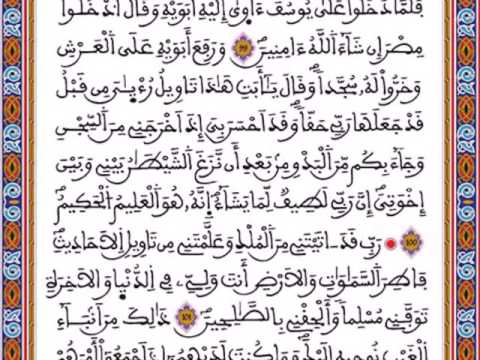 فَلَمَّا دَخَلُواْ عَلَىٰ يُوسُفَ ءَاوَىٰ إِلَيْهِ أَبَوَيْهِ وَقَالَ اَدْخُلُواْ
مِصْرَ إِن شَآءَ اَللَّهُ ءَامِنِينَ 99 وَرَفَعَ أَبَوَيْهِ عَلَى اَلْعَرْشِ
وَخَرُّواْ لَهُۥ سُجَّداٗ وَقَالَ يَٰٓأَبَتِ هَٰذَا تَاوِيلُ رُءْيَٰيَ مِن قَبْلُ
قَدْ جَعَلَهَا رَبِّي حَقّاٗ وَقَدَ اَحْسَنَ بِيَ إِذَ اَخْرَجَنِي مِنَ اَلسِّجْنِ
وَجَآءَ بِكُم مِّنَ اَلْبَدْوِ مِنۢ بَعْدِ أَن نَّزَغَ اَلشَّيْطَٰنُ بَيْنِي وَبَيْنَ
إِخْوَتِيَ إِنَّ رَبِّي لَطِيفٞ لِّمَا يَشَآءُ اِ۪نَّهُۥ هُوَ اَلْعَلِيمُ اُلْحَكِيمُ
100 رَبِّ قَدَ ـ اتَيْتَنِي مِنَ اَلْمُلْكِ وَعَلَّمْتَنِي مِن تَاوِيلِ اِلَاحَادِيثِ
فَاطِرَ اَلسَّمَٰوَٰتِ وَالَارْضِ أَنتَ وَلِيِّۦ فِي اِلدُّنْيَا وَالَاخِرَةِ
تَوَفَّنِي مُسْلِماٗ وَأَلْحِقْنِي بِالصَّٰلِحِينَ 101 ذَٰلِكَ مِنَ اَنۢبَآءِ
اِلْغَيْبِ نُوحِيهِ إِلَيْكَ وَمَا كُنتَ لَدَيْهِمُۥٓ إِذَ اَجْمَعُوٓاْ أَمْرَهُمْ